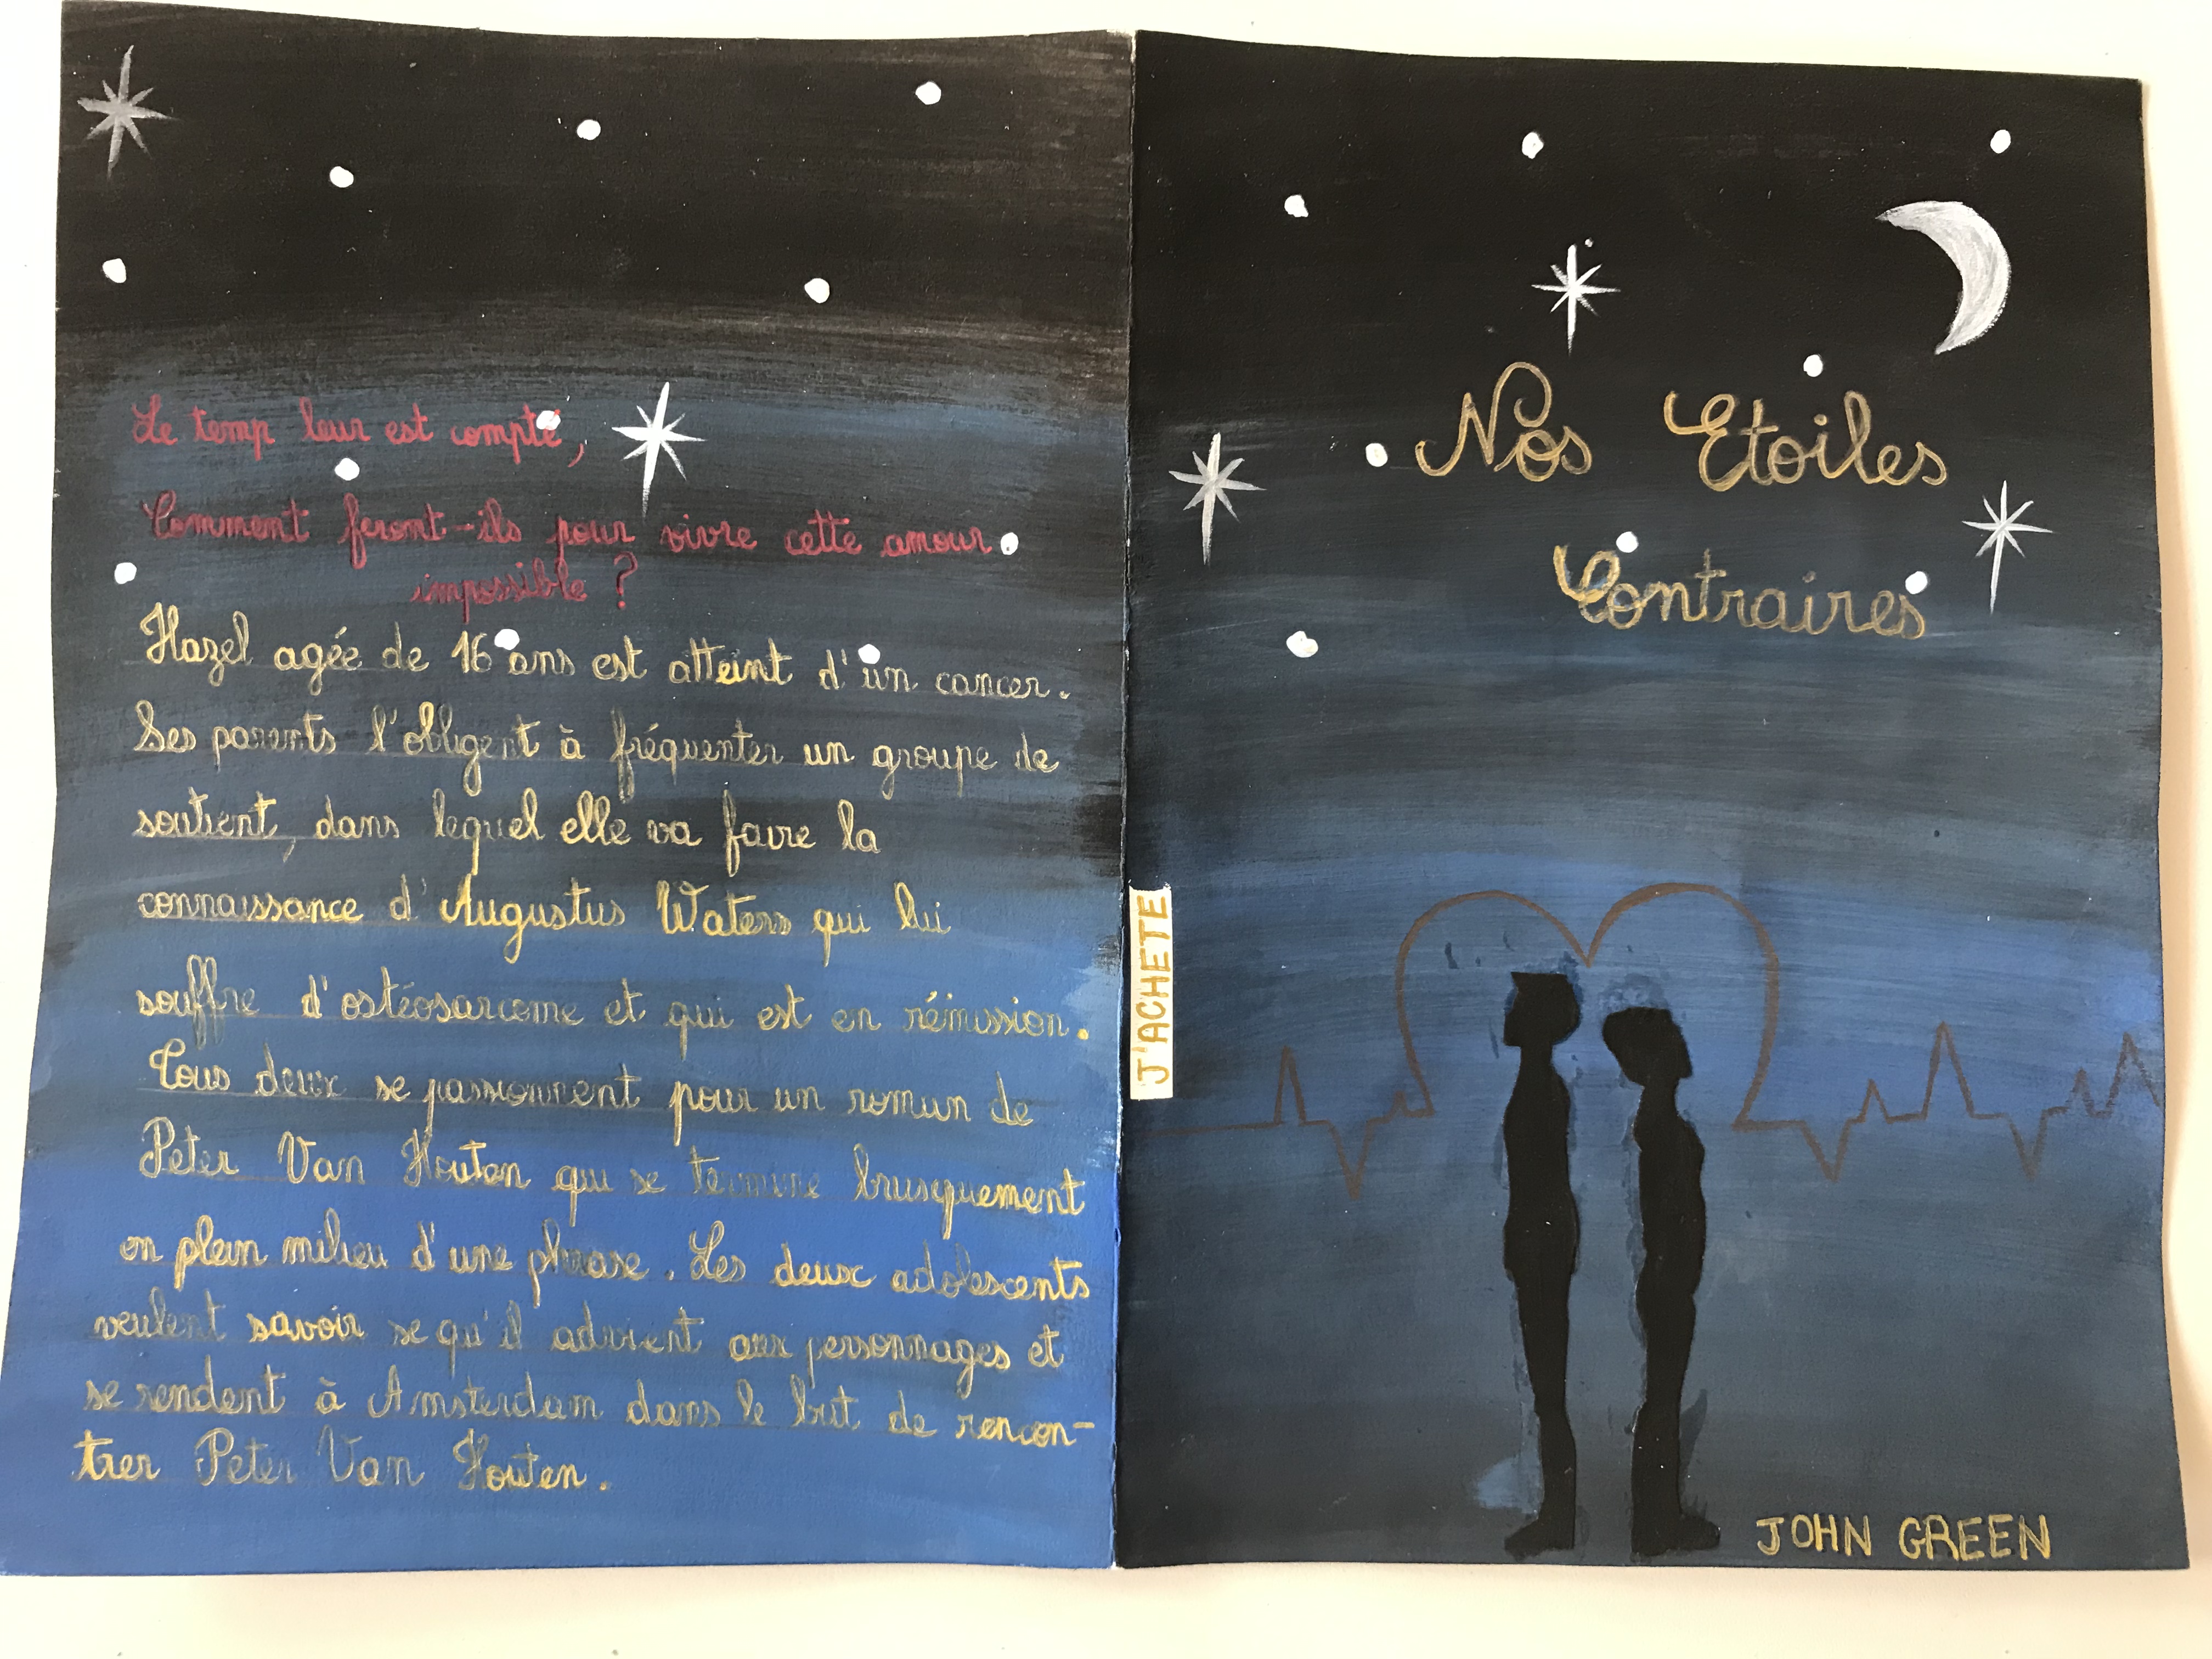 Le temp leur est compté,
Comment feront-ils pour vivre cette amour
impossible ?
Hazel agée de 16 ans est atteint d'un cancer.
Ses parents l'obligent à fréquenter un groupe de
soutient, dans lequel elle va faire la
connaissance d'Augustus Waters qui lui
souffre d'ostéosarcome et qui est en rémission.
Tous deux se passionnent pour un roman de
Peter Van Houten qui se termine brusquement
en plein milieu d'une phrase. Les deux adolescents
veulent savoir se qu'il advient aux personnages et
se rendent à Amsterdam dans le but de rencon-
trer Peter Van Houten.
J'ACHETE
Nos Etoiles
Contraires
JOHN GREEN